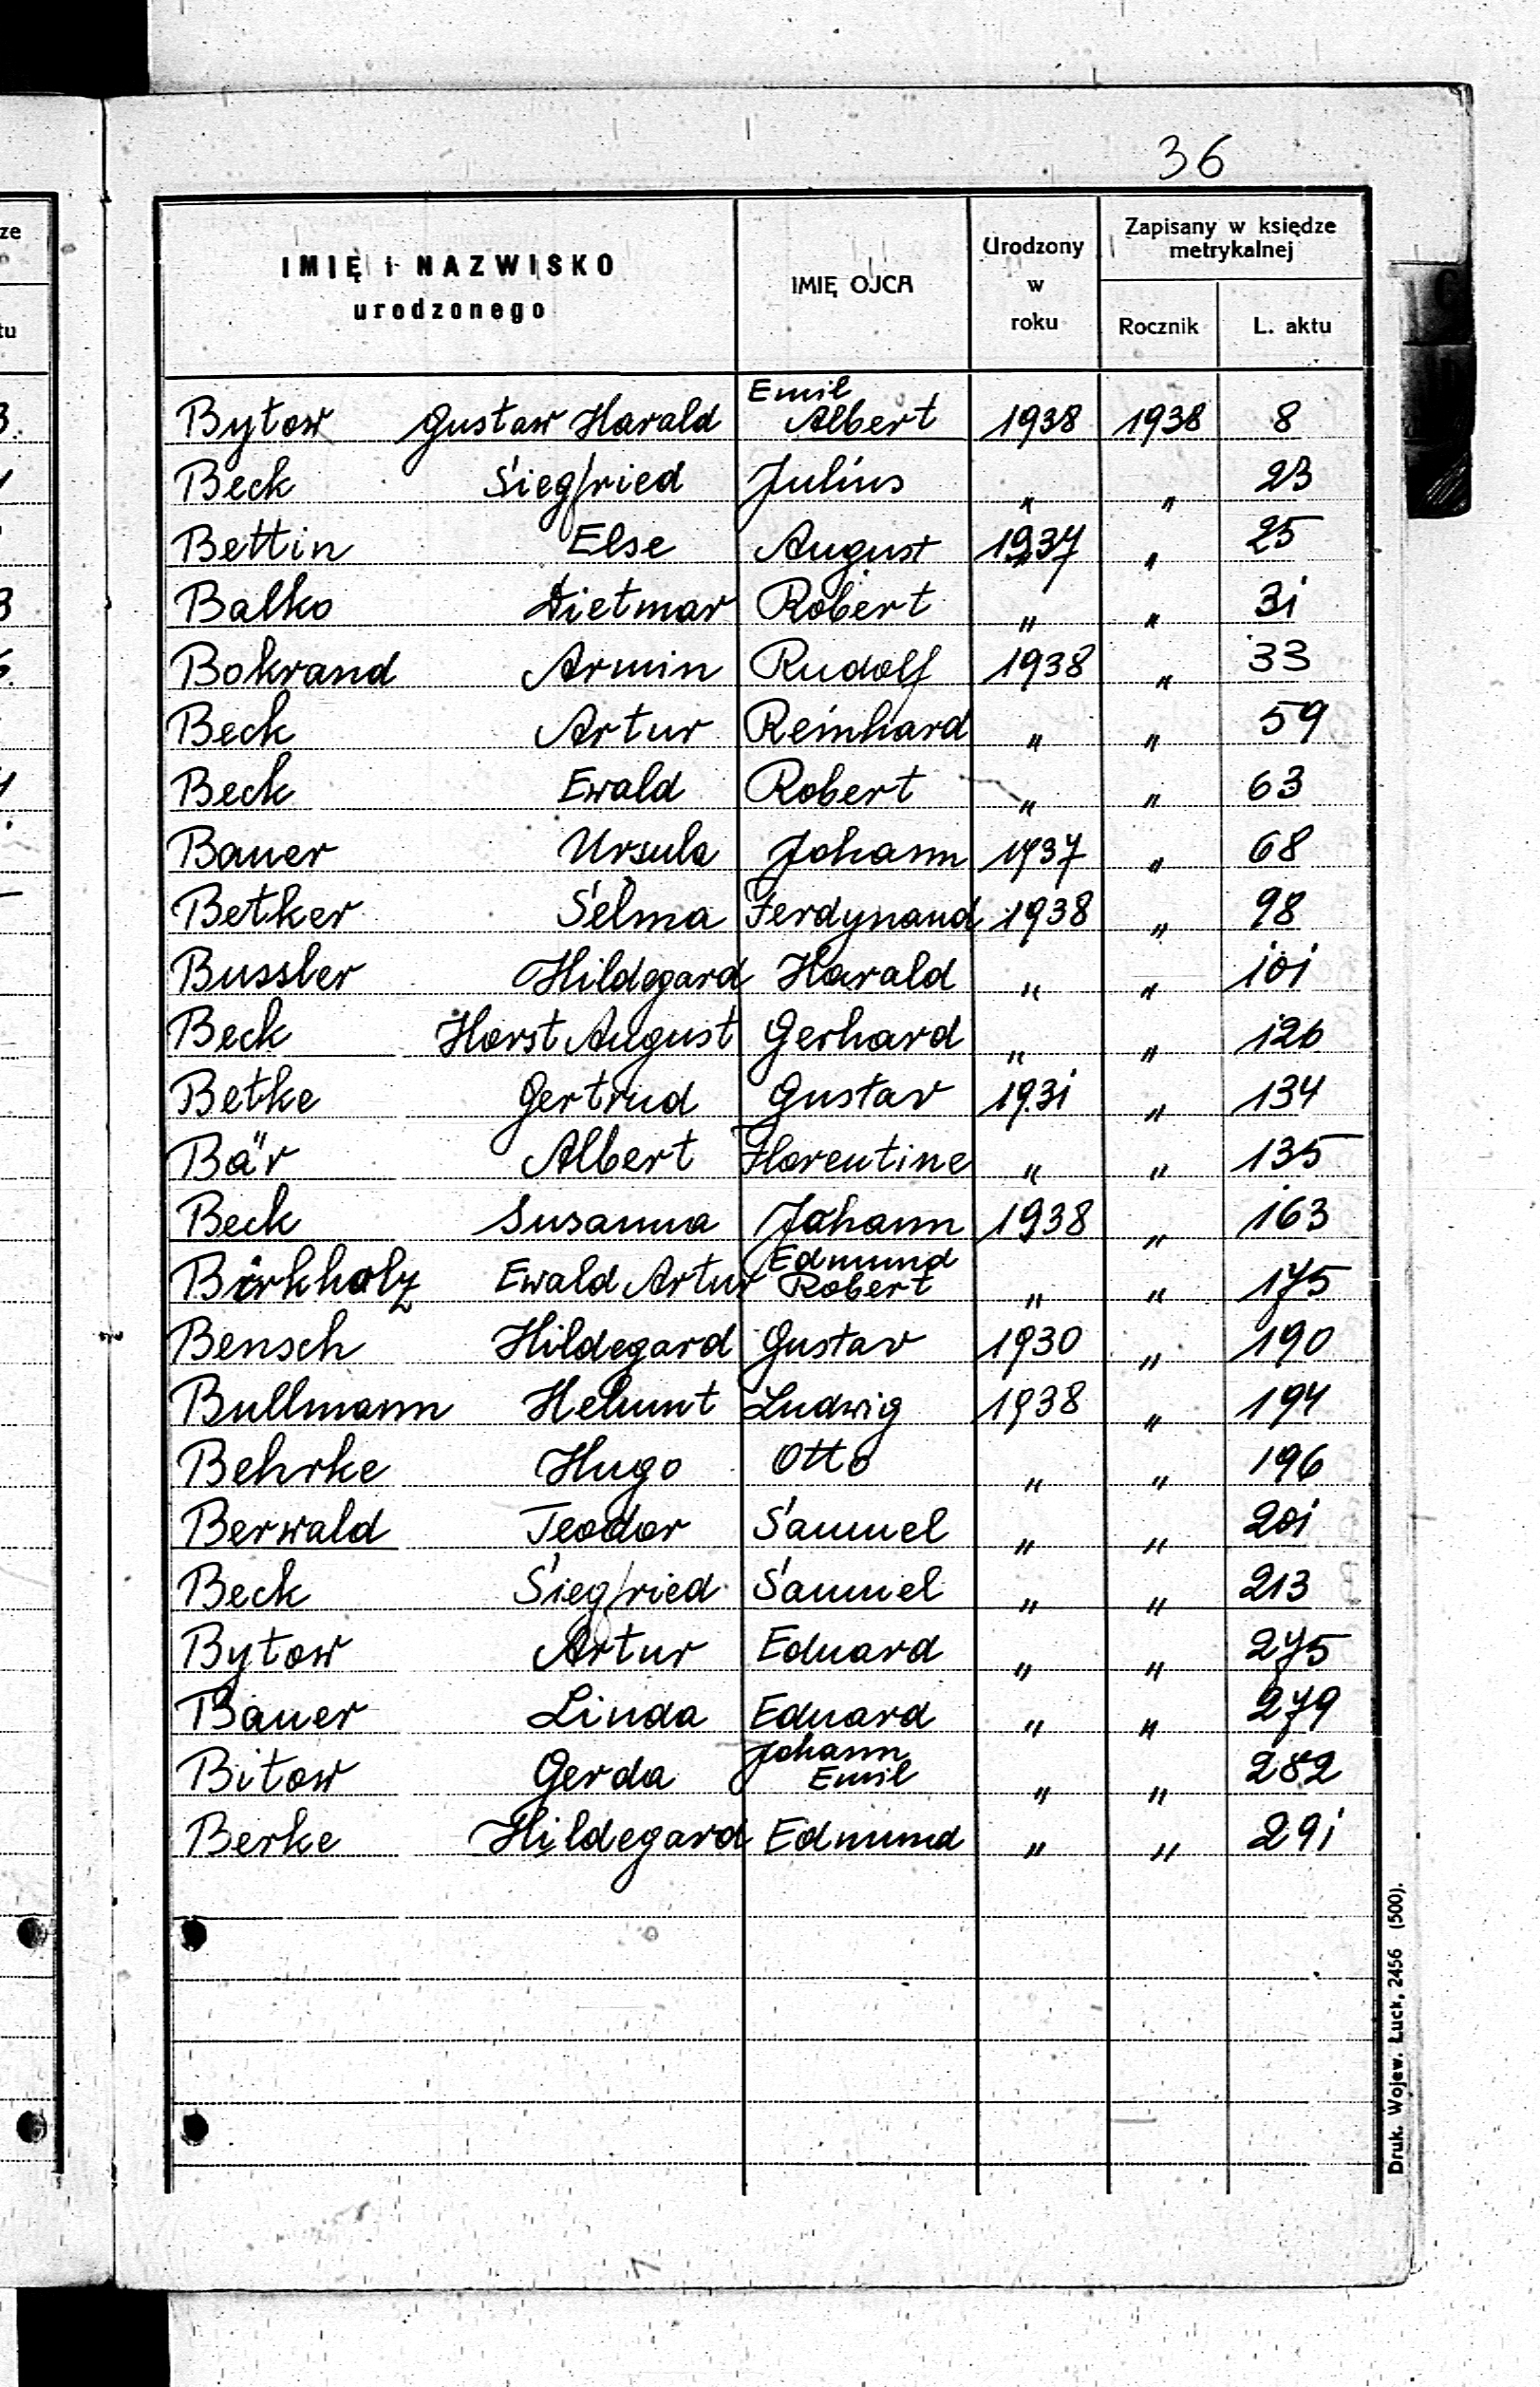 36
IMIĘ i NAZWISKO
urodzonego
IMIĘ OJCA
Urodzony
w
roku
Zapisany w księdze
metrykalnej
Rocznik
L. aktu
Bytow Gustaw Harald Emil Albert 1938 1938 8
Beck Siegfried Julius " " 23
Bettin Else August 1937 " 25
Balko Dietmar Robert " " 31
Bokrand Armin Rudolf 1938 " 33
Beck Artur Reinhard " " 59
Beck Ewald Robert " " 63
Bauer Ursula Johann 1937 " 68
Betker Selma Ferdynand 1938 " 98
Bussler Hildegard Harald " " 101
Beck Horst August Gerhard " " 126
Betke Gertrud Gustav 1931 " 134
Bär Albert Florentine " " 135
Beck Susanna Johann 1938 " 163
Birkholz Ewald Artur Edmund Robert " " 175
Bensch Hildegard Gustav 1930 " 190
Bullmann Helmut Ludwig 1938 " 194
Behrke Hugo Otto " " 196
Berwald Teodor Samuel " " 201
Beck Siegfried Samuel " " 213
Bytow Artur Eduard " " 275
Bauer Linda Eduard " " 279
Bitow Gerda Johann Emil " " 282
Berke Hildegard Edmund " " 291
Druk. Wojew. Łuck, 2456 (500).